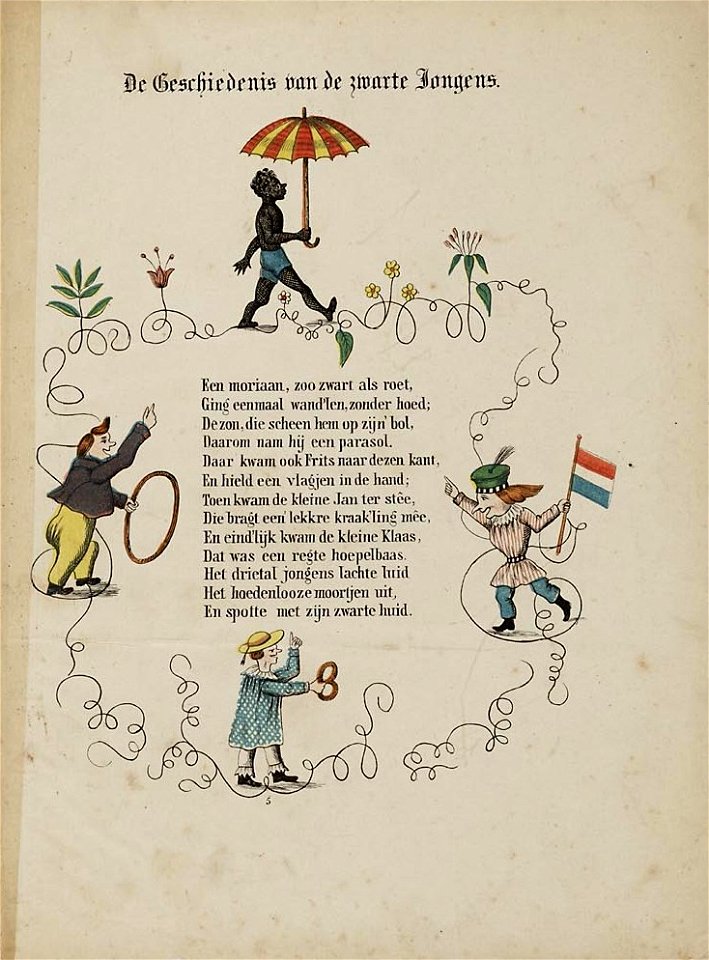 De Geschiedenis van de zwarte Jongens.
Een moriaan, zoo zwart als roet,
Ging eenmaal wand'len, zonder hoed;
De zon, die scheen hem op zijn' bol,
Daarom nam hij een parasol.
Daar kwam ook Frits naar dezen kant,
En hield een vlagjen in de hand;
Toen kwam de kleine Jan ter stêe,
Die bragt een' lekkre kraak'ling mêe,
En eind'lijk kwam de kleine Klaas,
Dat was een regte hoepelbaas.
Het drietal jongens lachte luid
Het hoedenlooze moortjen uit,
En spotte met zijn zwarte huid.
5